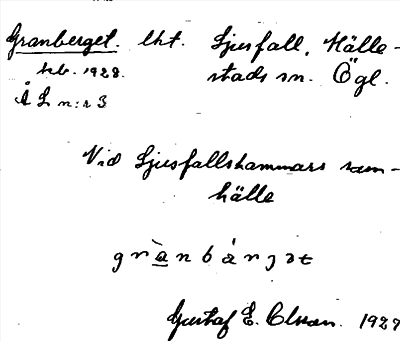 Granberget. lht. Ljusfall, Hälle-
hb. 1928. stads sn. Ögl.
Å L n:r 3
Vid Ljusfallshammars sam-
hälle
grànbárjət
Gustaf E. Olsson. 1928